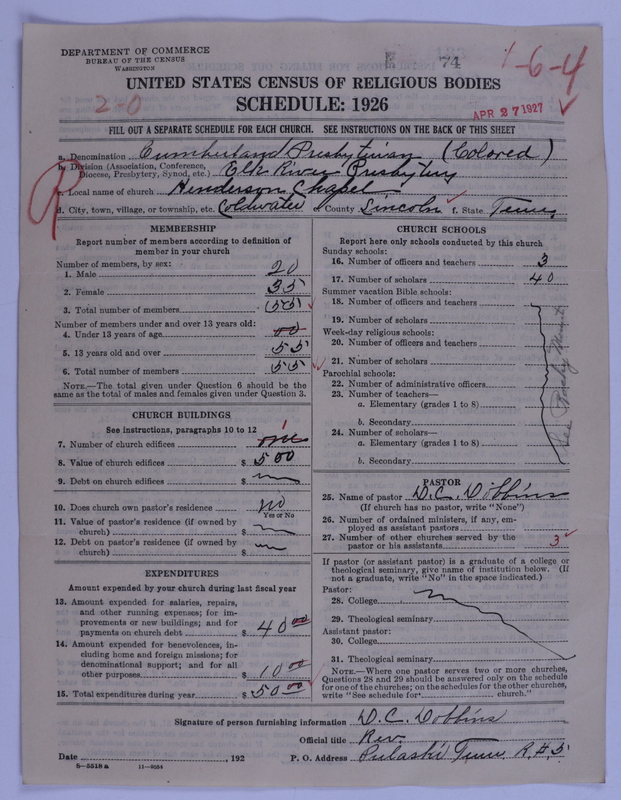 DEPARTMENT OF COMMERCE
BUREAU OF THE CENSUS
WASHINGTON
74
1-6-4
UNITED STATES CENSUS OF RELIGIOUS BODIES
2-0
SCHEDULE: 1926
APR 27 1927
FILL OUT A SEPARATE SCHEDULE FOR EACH CHURCH. SEE INSTRUCTIONS ON THE BACK OF THIS SHEET
a. Denomination Cumberland Presbyterian (Colored)
b. Division (Association, Conference, Diocese, Presbytery, Synod, etc.) Elk River Presbytery
c. Local name of church Henderson Chapel
d. City, town, village, or township, etc. Coldwater e. County Lincoln f. State Tenn
MEMBERSHIP
Report number of members according to definition of
member in your church
Number of members, by sex:
1. Male 20
2. Female 35
3. Total number of members 55
Number of members under and over 13 years old:
4. Under 13 years of age 00
5. 13 years old and over 55
6. Total number of members 55
NOTE.—The total given under Question 6 should be the
same as the total of males and females given under Question 3.
CHURCH BUILDINGS
See instructions, paragraphs 10 to 12
7. Number of church edifices one 1
8. Value of church edifices $ 500
9. Debt on church edifices $
10. Does church own pastor's residence no
Yes or No
11. Value of pastor's residence (if owned by
church) $
12. Debt on pastor's residence (if owned by
church) $
EXPENDITURES
Amount expended by your church during last fiscal year
13. Amount expended for salaries, repairs,
and other running expenses; for im-
provements or new buildings; and for
payments on church debt $ 40 00
14. Amount expended for benevolences, in-
cluding home and foreign missions; for
denominational support; and for all
other purposes $ 10 00
15. Total expenditures during year $ 50 00
CHURCH SCHOOLS
Report here only schools conducted by this church
Sunday schools:
16. Number of officers and teachers 3
17. Number of scholars 40
Summer vacation Bible schools:
18. Number of officers and teachers
19. Number of scholars
Week-day religious schools:
20. Number of officers and teachers
21. Number of scholars
Parochial schools:
22. Number of administrative officers
23. Number of teachers—
a. Elementary (grades 1 to 8)
b. Secondary
24. Number of scholars—
a. Elementary (grades 1 to 8)
b. Secondary
PASTOR
25. Name of pastor D. C. Dobbins
(If church has no pastor, write "None")
26. Number of ordained ministers, if any, em-
ployed as assistant pastors
27. Number of other churches served by the
pastor or his assistants 3
If pastor (or assistant pastor) is a graduate of a college or
theological seminary, give name of institution below. (If
not a graduate, write "No" in the space indicated.)
Pastor:
28. College
29. Theological seminary
Assistant pastor:
30. College
31. Theological seminary
NOTE.—Where one pastor serves two or more churches,
Questions 28 and 29 should be answered only on the schedule
for one of the churches; on the schedules for the other churches,
write "See schedule for church."
Signature of person furnishing information D. C. Dobbins
Official title Rev.
Date , 192 P. O. Address Pulaski Tenn R. # 5
8-5518 a 11-9554